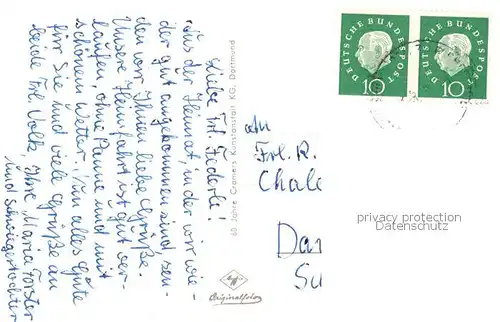 Liebe Frl. Federle!
Aus der Heimat, in der wir wie-
der gut angekommen sind, sen-
den wir Ihnen liebe Grüße.
Unsere Heimfahrt ist gut ver-
laufen, ohne Panne und mit
schönem Wetter. Nun alles Gute
für Sie und viele Grüße an
beide Frl. Volk, Ihre Maria Forster
und Schwiegertochter
60 Jahre Cramers Kunstanstalt KG, Dortmund
Agfa
Originalfoto
DEUTSCHE BUNDESPOST
10
DEUTSCHE BUNDESPOST
10
an
Frl. R.
Chale
Da
privacy protection
Datenschutz